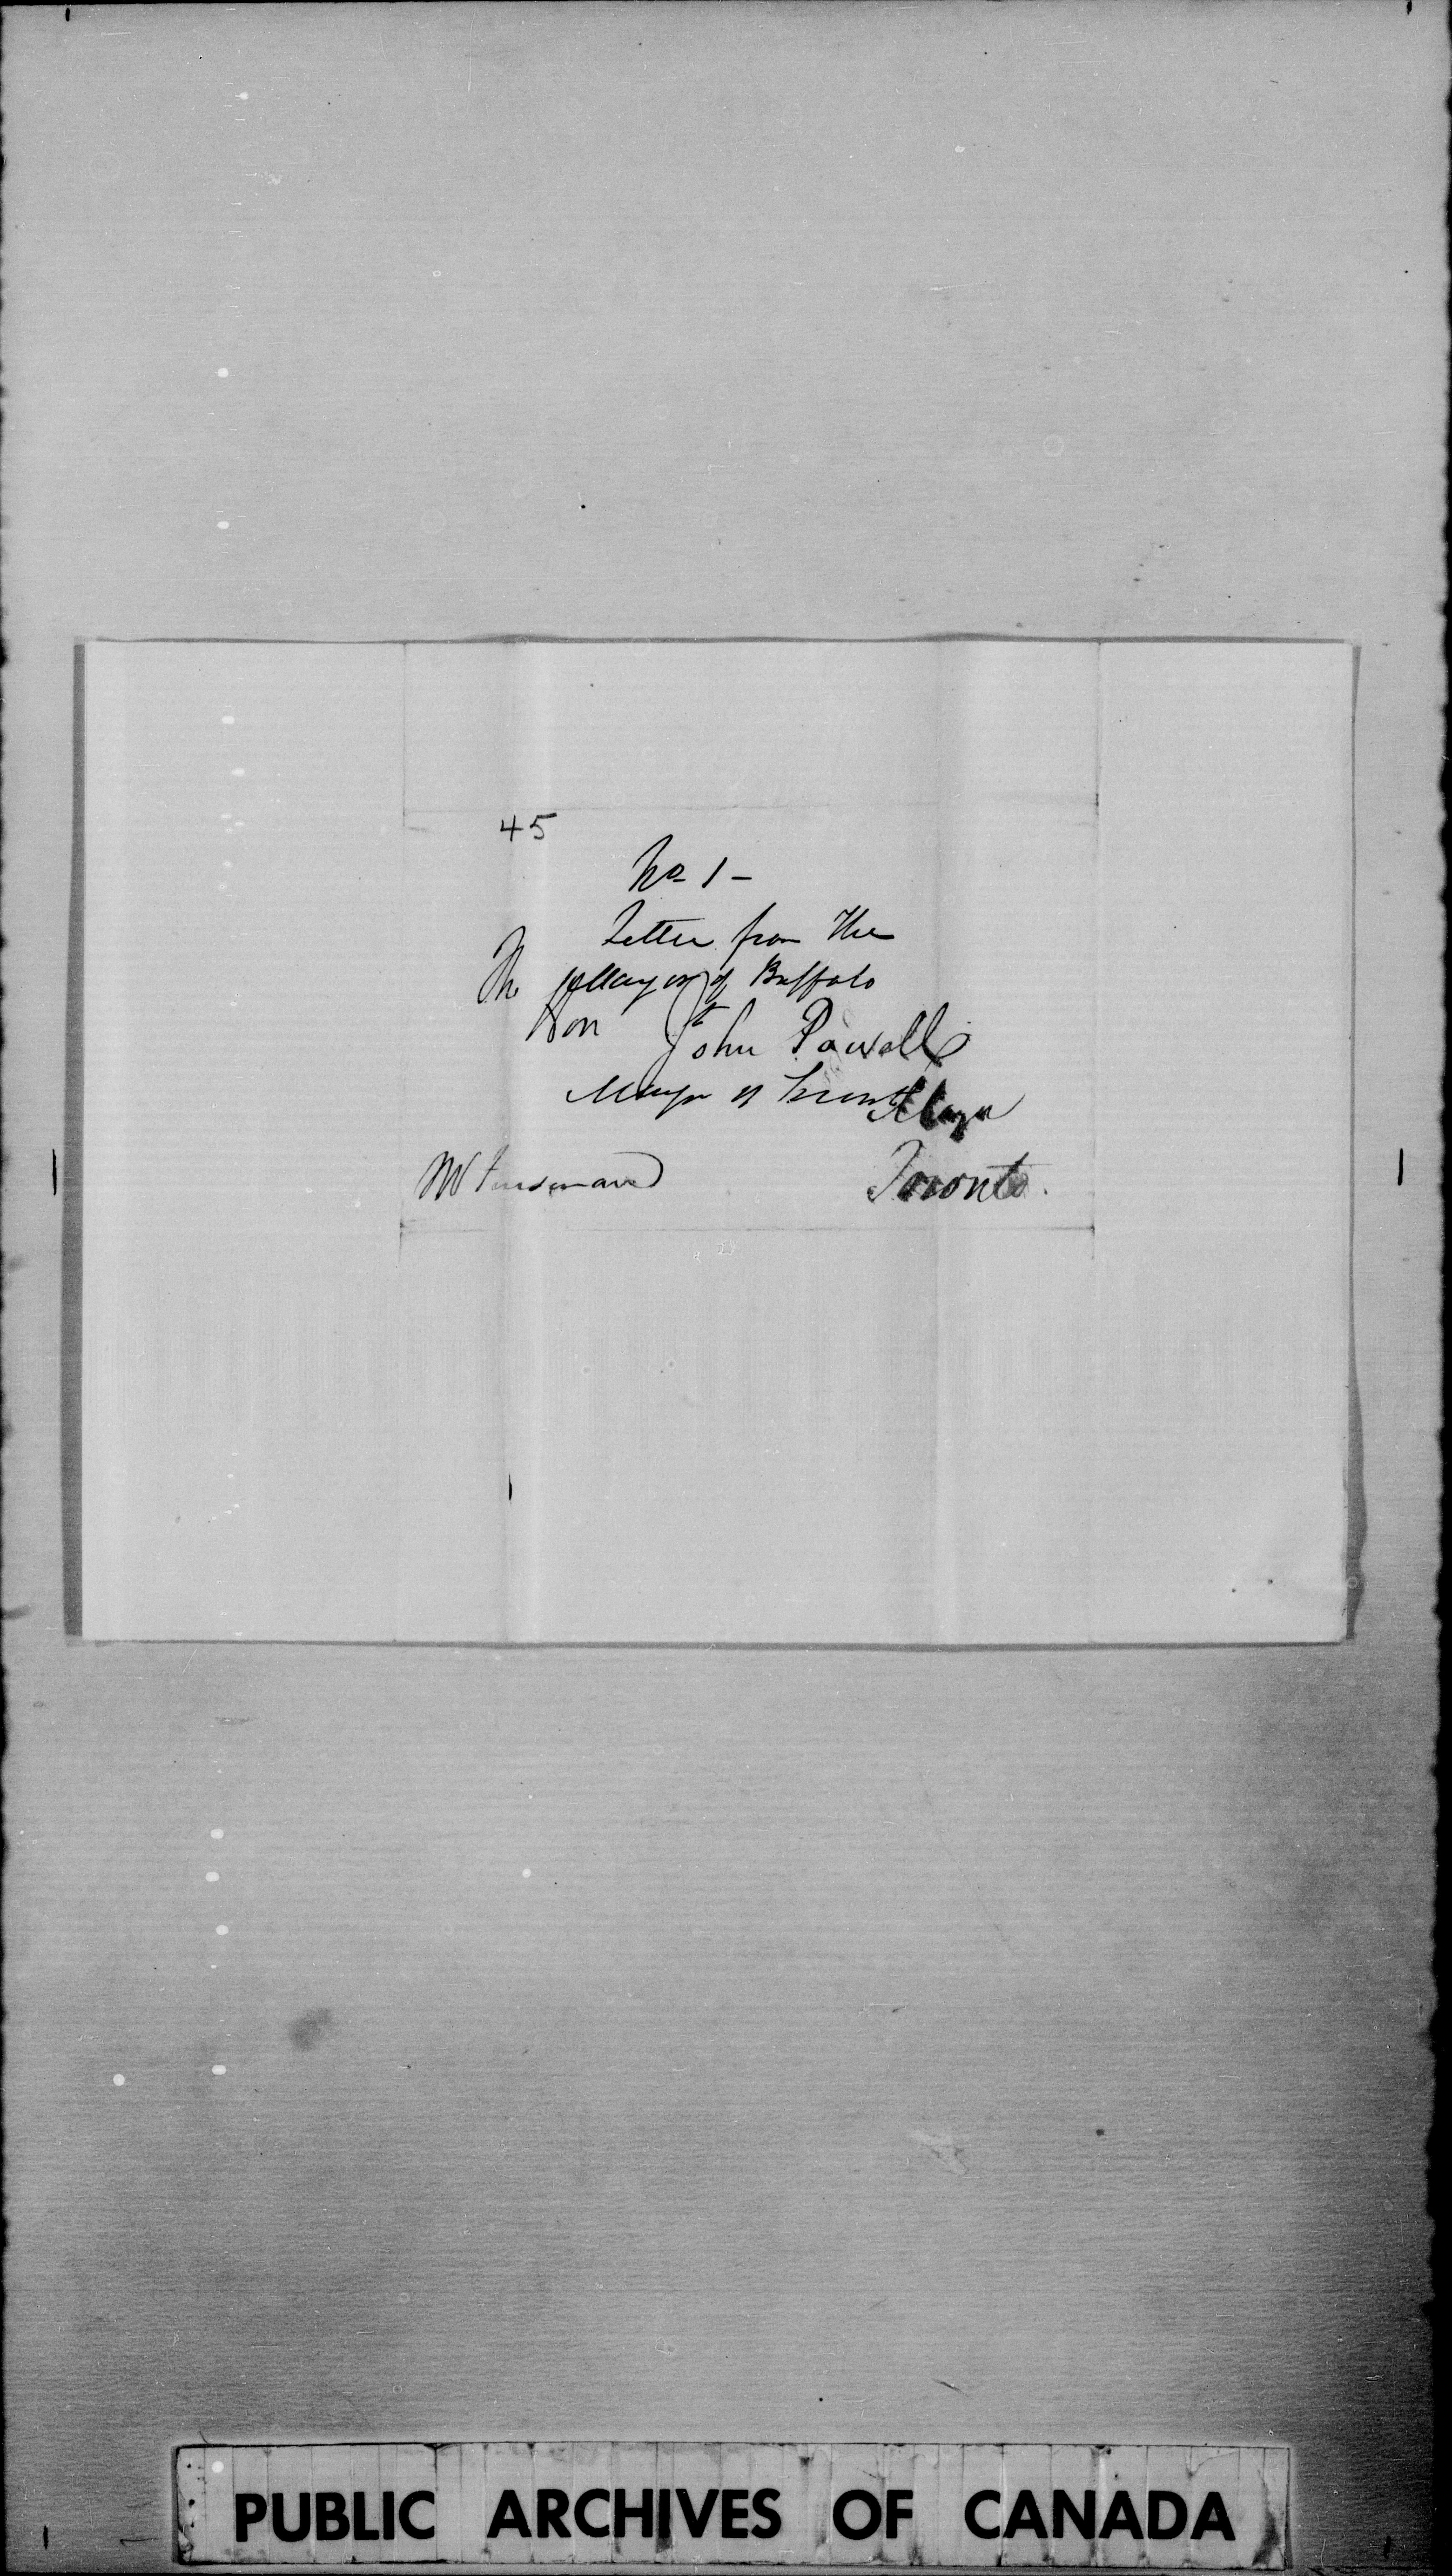 45
No 1 -
Letter from The
The Mayor of Buffalo
Hon to
John Powell
Mayor of Toronto Mayor
Toronto.
PUBLIC ARCHIVES OF CANADA